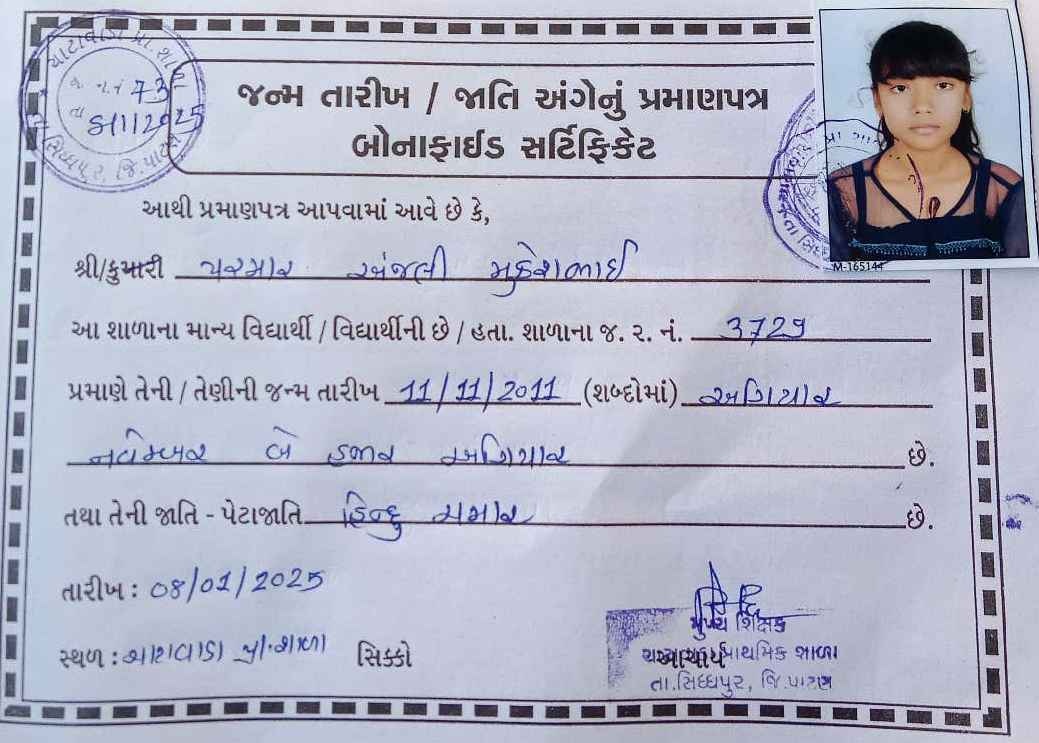 જ. ન.ં 73
તા 8/1/2025
જન્મ તારીખ / જાતિ અંગેનું પ્રમાણપત્ર
બોનાફાઈડ સર્ટિફિકેટ
M-165144
આથી પ્રમાણપત્ર આપવામાં આવે છે કે,
શ્રી/કુમારી પરમાર અંજલી મુકેશભાઈ
આ શાળાના માન્ય વિદ્યાર્થી / વિદ્યાર્થીની છે / હતા. શાળાના જ. ર. નં. 3729
પ્રમાણે તેની / તેણીની જન્મ તારીખ 11/11/2011 (શબ્દોમાં) અગિયાર
નવેમ્બર બે હજાર અગિયાર છે.
તથા તેની જાતિ - પેટાજાતિ હિન્દુ ચમાર છે.
તારીખ : 08/01/2025
સ્થળ : ચાટાવાડા પ્રા.શાળા સિક્કો
મુખ્ય શિક્ષક
આચાર્ય પ્રાથમિક શાળા
તા.સિધ્ધપુર, જિ.પાટણ